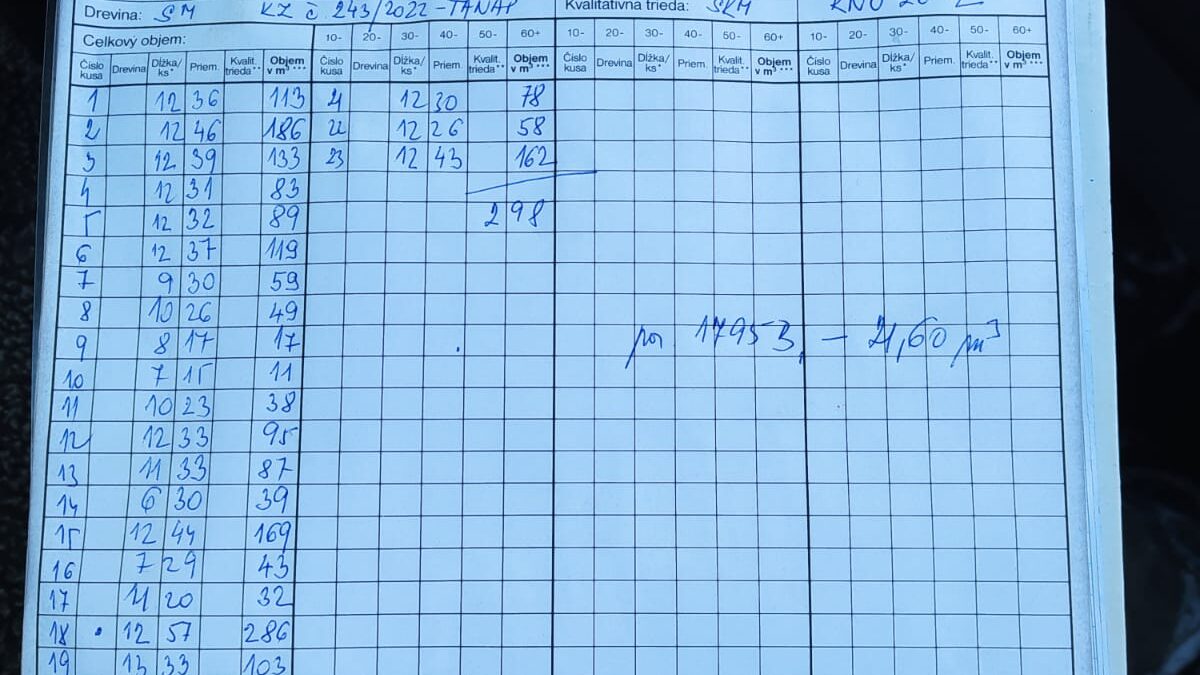 Drevina: SM KZ č. 243/2022 - TANAP Kvalitatívna trieda: SKM
Celkový objem: 10- 20- 30- 40- 50- 60+ 10- 20- 30- 40- 50- 60+ 10- 20- 30- 40- 50- 60+
Číslo kusa Drevina Dĺžka/ks* Priem. Kvalit. trieda** Objem v m³ *** Číslo kusa Drevina Dĺžka/ks* Priem. Kvalit. trieda** Objem v m³ *** Číslo kusa Drevina Dĺžka/ks* Priem. Kvalit. trieda** Objem v m³ *** Číslo kusa Drevina Dĺžka/ks* Priem. Kvalit. trieda** Objem v m³ ***
1 12 36 113 21 12 30 78
2 12 46 186 22 12 26 58
3 12 39 133 23 12 43 162
4 12 31 83
5 12 32 89 298
6 12 37 119
7 9 30 59
8 10 26 49
9 8 17 17 1795 - 21,60 m³
10 7 15 11
11 10 23 38
12 12 33 95
13 11 33 87
14 6 30 39
15 12 44 169
16 7 29 43
17 11 20 32
18 12 57 286
19 13 33 103